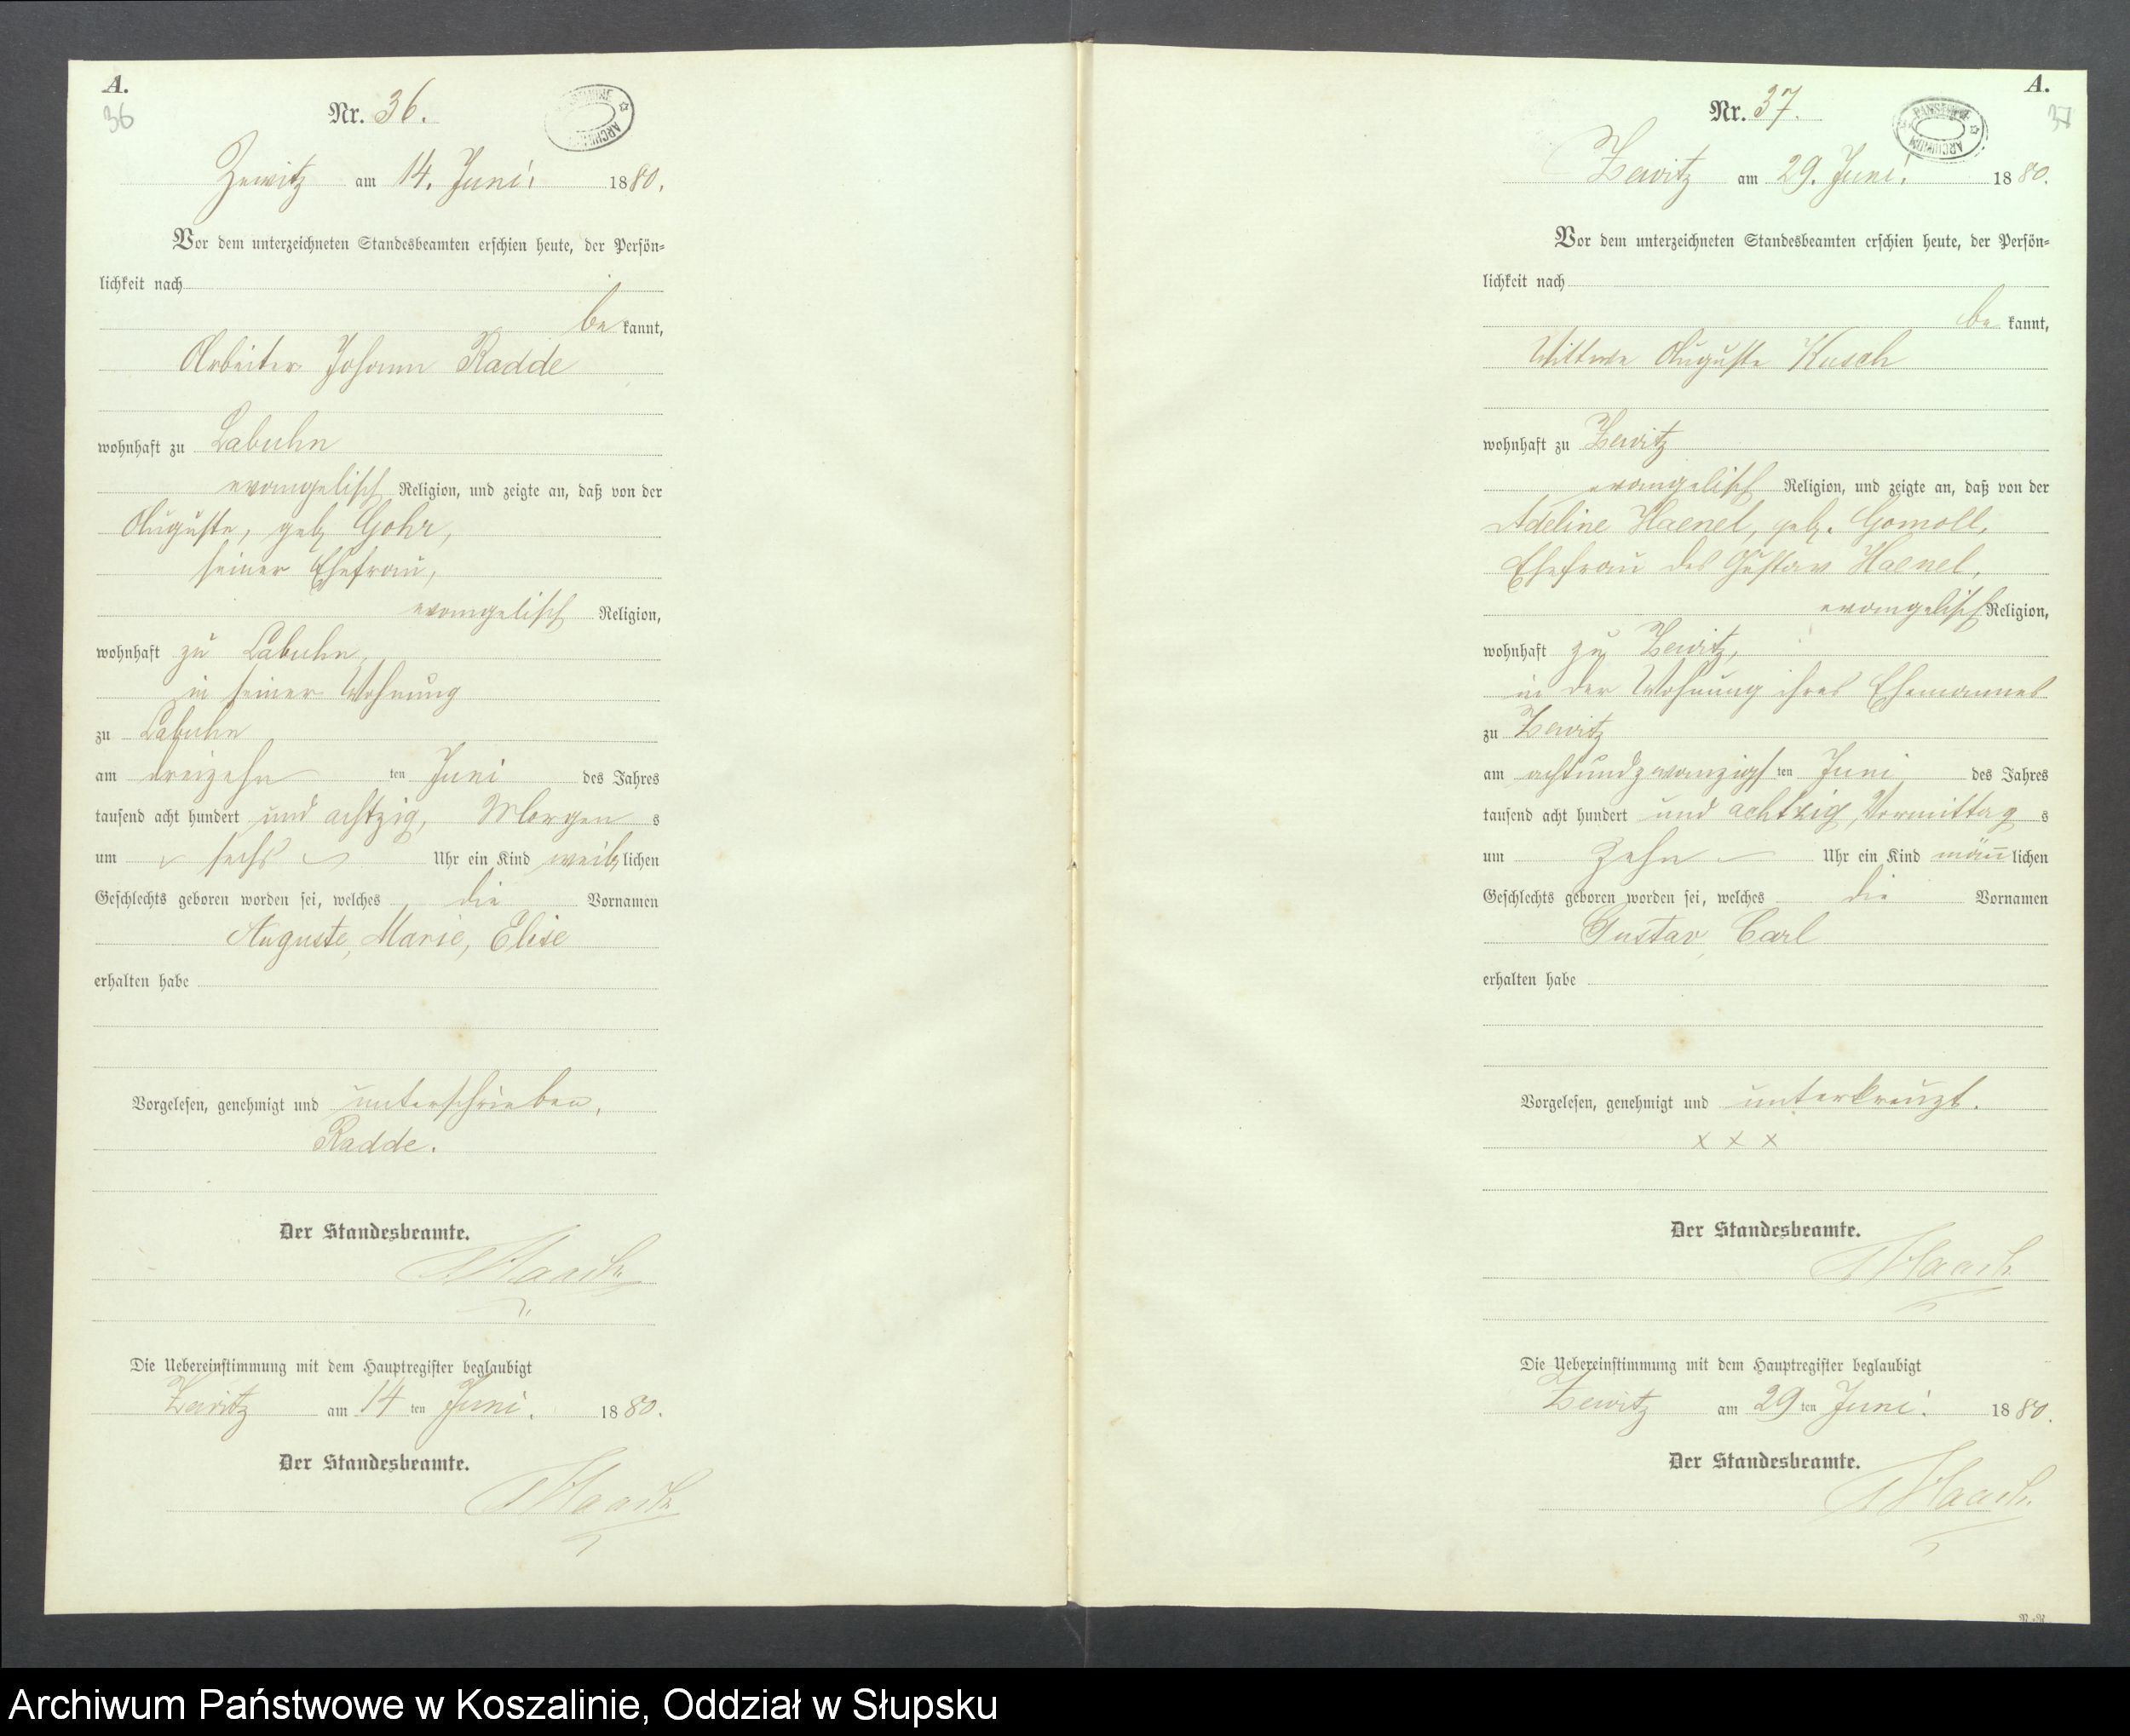 A.
36
Nr. 36.
Zewitz am 14. Juni 1880.
Vor dem unterzeichneten Standesbeamten erschien heute, der Persön-
lichkeit nach
be kannt,
Arbeiter Johann Radde
wohnhaft zu Labuhn
evangelisch Religion, und zeigte an, daß von der
Auguste, geb. Gohr,
seiner Ehefrau,
evangelisch Religion,
wohnhaft zu Labuhn,
in seiner Wohnung
zu Labuhn
am dreizehn ten Juni des Jahres
tausend acht hundert und achtzig, Morgen s
um sechs Uhr ein Kind weib lichen
Geschlechts geboren worden sei, welches die Vornamen
Auguste, Marie, Elise
erhalten habe
Vorgelesen, genehmigt und unterschrieben.
Radde.
Der Standesbeamte.
Die Uebereinstimmung mit dem Hauptregister beglaubigt
Zewitz am 14 ten Juni. 1880.
Der Standesbeamte.
A.
37
Nr. 37.
ARCHIWUM
Zewitz am 29. Juni. 1880.
Vor dem unterzeichneten Standesbeamten erschien heute, der Persön-
lichkeit nach
be kannt,
Wittwe Auguste Kusch
wohnhaft zu Zewitz
evangelisch Religion, und zeigte an, daß von der
Adeline Haenel, geb. Gomoll,
Ehefrau des Gustav Haenel,
evangelisch Religion,
wohnhaft zu Zewitz,
in der Wohnung ihres Ehemannes
zu Zewitz
am achtundzwanzigs ten Juni des Jahres
tausend acht hundert und achtzig, Vormittag s
um zehn Uhr ein Kind männ lichen
Geschlechts geboren worden sei, welches die Vornamen
Gustav, Carl
erhalten habe
Vorgelesen, genehmigt und unterkreuzt.
x x x
Der Standesbeamte.
Die Uebereinstimmung mit dem Hauptregister beglaubigt
Zewitz am 29 ten Juni. 1880.
Der Standesbeamte.
Archiwum Państwowe w Koszalinie, Oddział w Słupsku